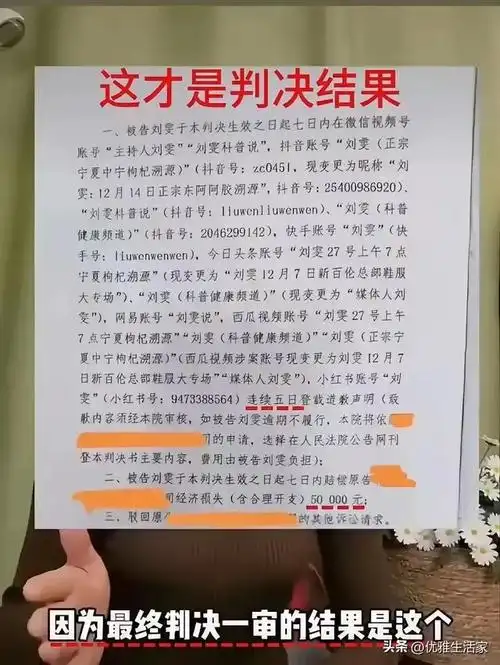 这才是判决结果
一、被告刘雯于本判决生效之日起七日内在微信视频号
账号“主持人刘雯”“刘雯科普说”，抖音账号“刘雯（正宗
宁夏中宁枸杞溯源）”（抖音号：zc0451，现变更为昵称“刘
雯：12月14日正宗东阿阿胶溯源”，抖音号：25400986920）、
“刘雯科普说”（抖音号：liuwenliuwenwen）、“刘雯（科普
健康频道）”（抖音号：2046299142），快手账号“刘雯”（快
手号：liuwenwenwen），今日头条账号“刘雯27号上午7点
宁夏枸杞溯源”（现变更为“刘雯12月7日新百伦总部鞋服
大专场”）、“刘雯（科普健康频道）”（现变更为“媒体人刘
雯”），网易账号“刘雯说”，西瓜视频账号“刘雯27号上午
7点宁夏枸杞溯源”“刘雯（科普健康频道）”“刘雯（正宗宁
夏中宁枸杞溯源）”（西瓜视频涉案账号现变更为刘雯12月7
日新百伦总部鞋服大专场”“媒体人刘雯”），小红书账号“刘
雯”（小红书号：9473388564）连续五日登载道歉声明（致
歉内容须经本院审核，如被告刘雯逾期不履行，本院将依
司的申请，选择在人民法院公告网刊
登本判决书主要内容，费用由被告刘雯负担）；
二、被告刘雯于本判决生效之日起七日内赔偿原告
司经济损失（含合理开支）50 000元；
三、驳回原
的其他诉讼请求。
因为最终判决一审的结果是这个
头条 @优雅生活家